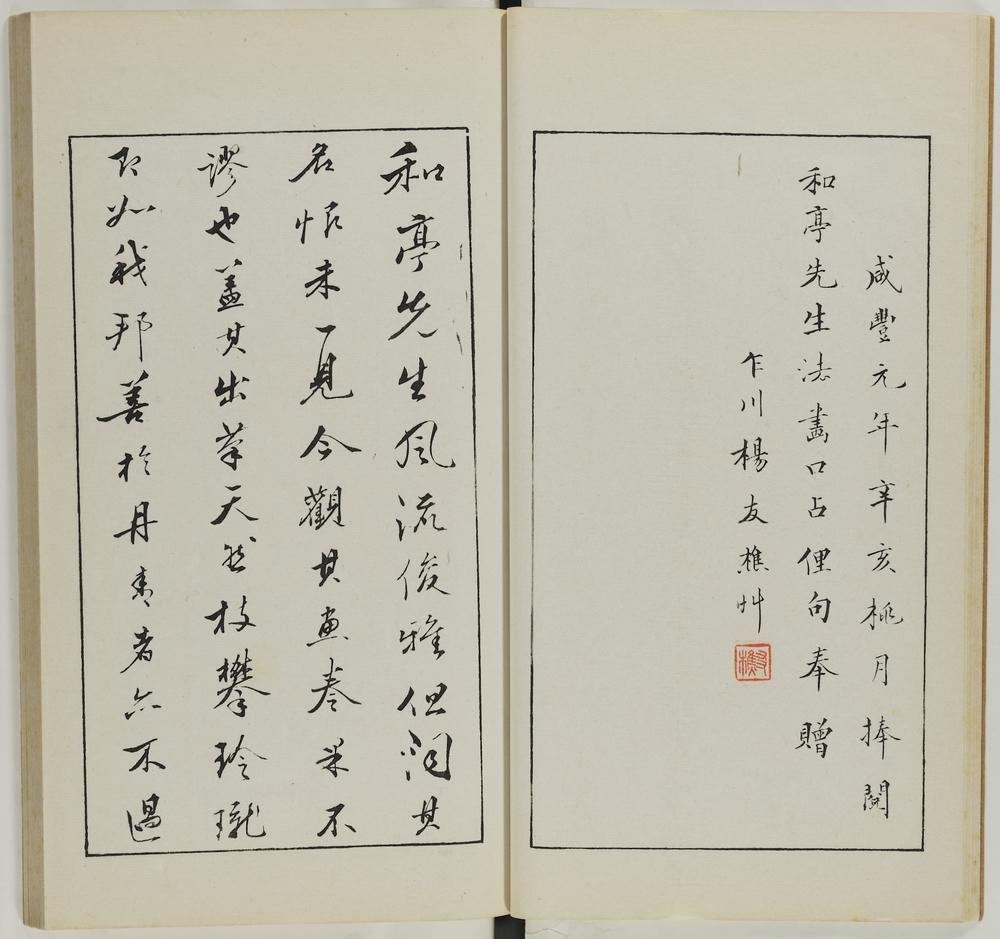 咸豐元年辛亥桃月捧閱
和亭先生法畫口占俚句奉贈
乍川楊友樵艸
友樵
和亭先生風流俊雅但聞其
名恨未一見今觀其畫卷果不
謬也蓋其出筆天然枝攀玲瓏
即如我邦善於丹青者亦不過